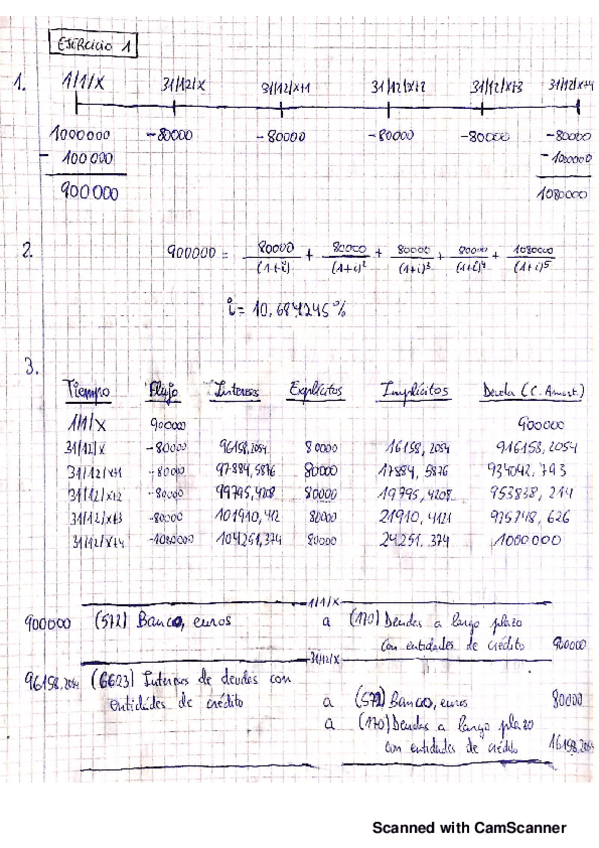 EJERCICIO 1
1. 1/1/X 31/12/X 31/12/X+1 31/12/X+2 31/12/X+3 31/12/X+4
1000000 -80000 -80000 -80000 -80000 -80000
- 100000 -1000000
900000 1080000
2. 900000 = 80000/(1+i) + 80000/(1+i)² + 80000/(1+i)³ + 80000/(1+i)⁴ + 1080000/(1+i)⁵
i = 10,684245%
3.
Tiempo Flujo Intereses Explícitos Implícitos Deuda (C. Amort.)
1/1/X 900000 900000
31/12/X -80000 96158,2054 80000 16158,2054 916158,2054
31/12/X+1 -80000 97884,5876 80000 17884,5876 934042,793
31/12/X+2 -80000 99795,4208 80000 19795,4208 953838,214
31/12/X+3 -80000 101910,412 80000 21910,4121 975748,626
31/12/X+4 -1080000 104251,374 80000 24251,374 1000000
1/1/X
900000 (572) Banco, euros a (170) Deudas a largo plazo
con entidades de crédito 900000
31/12/X
96158,2054 (6623) Intereses de deudas con
entidades de crédito a (572) Banco, euros 80000
a (170) Deudas a largo plazo
con entidades de crédito 16158,2054
Scanned with CamScanner